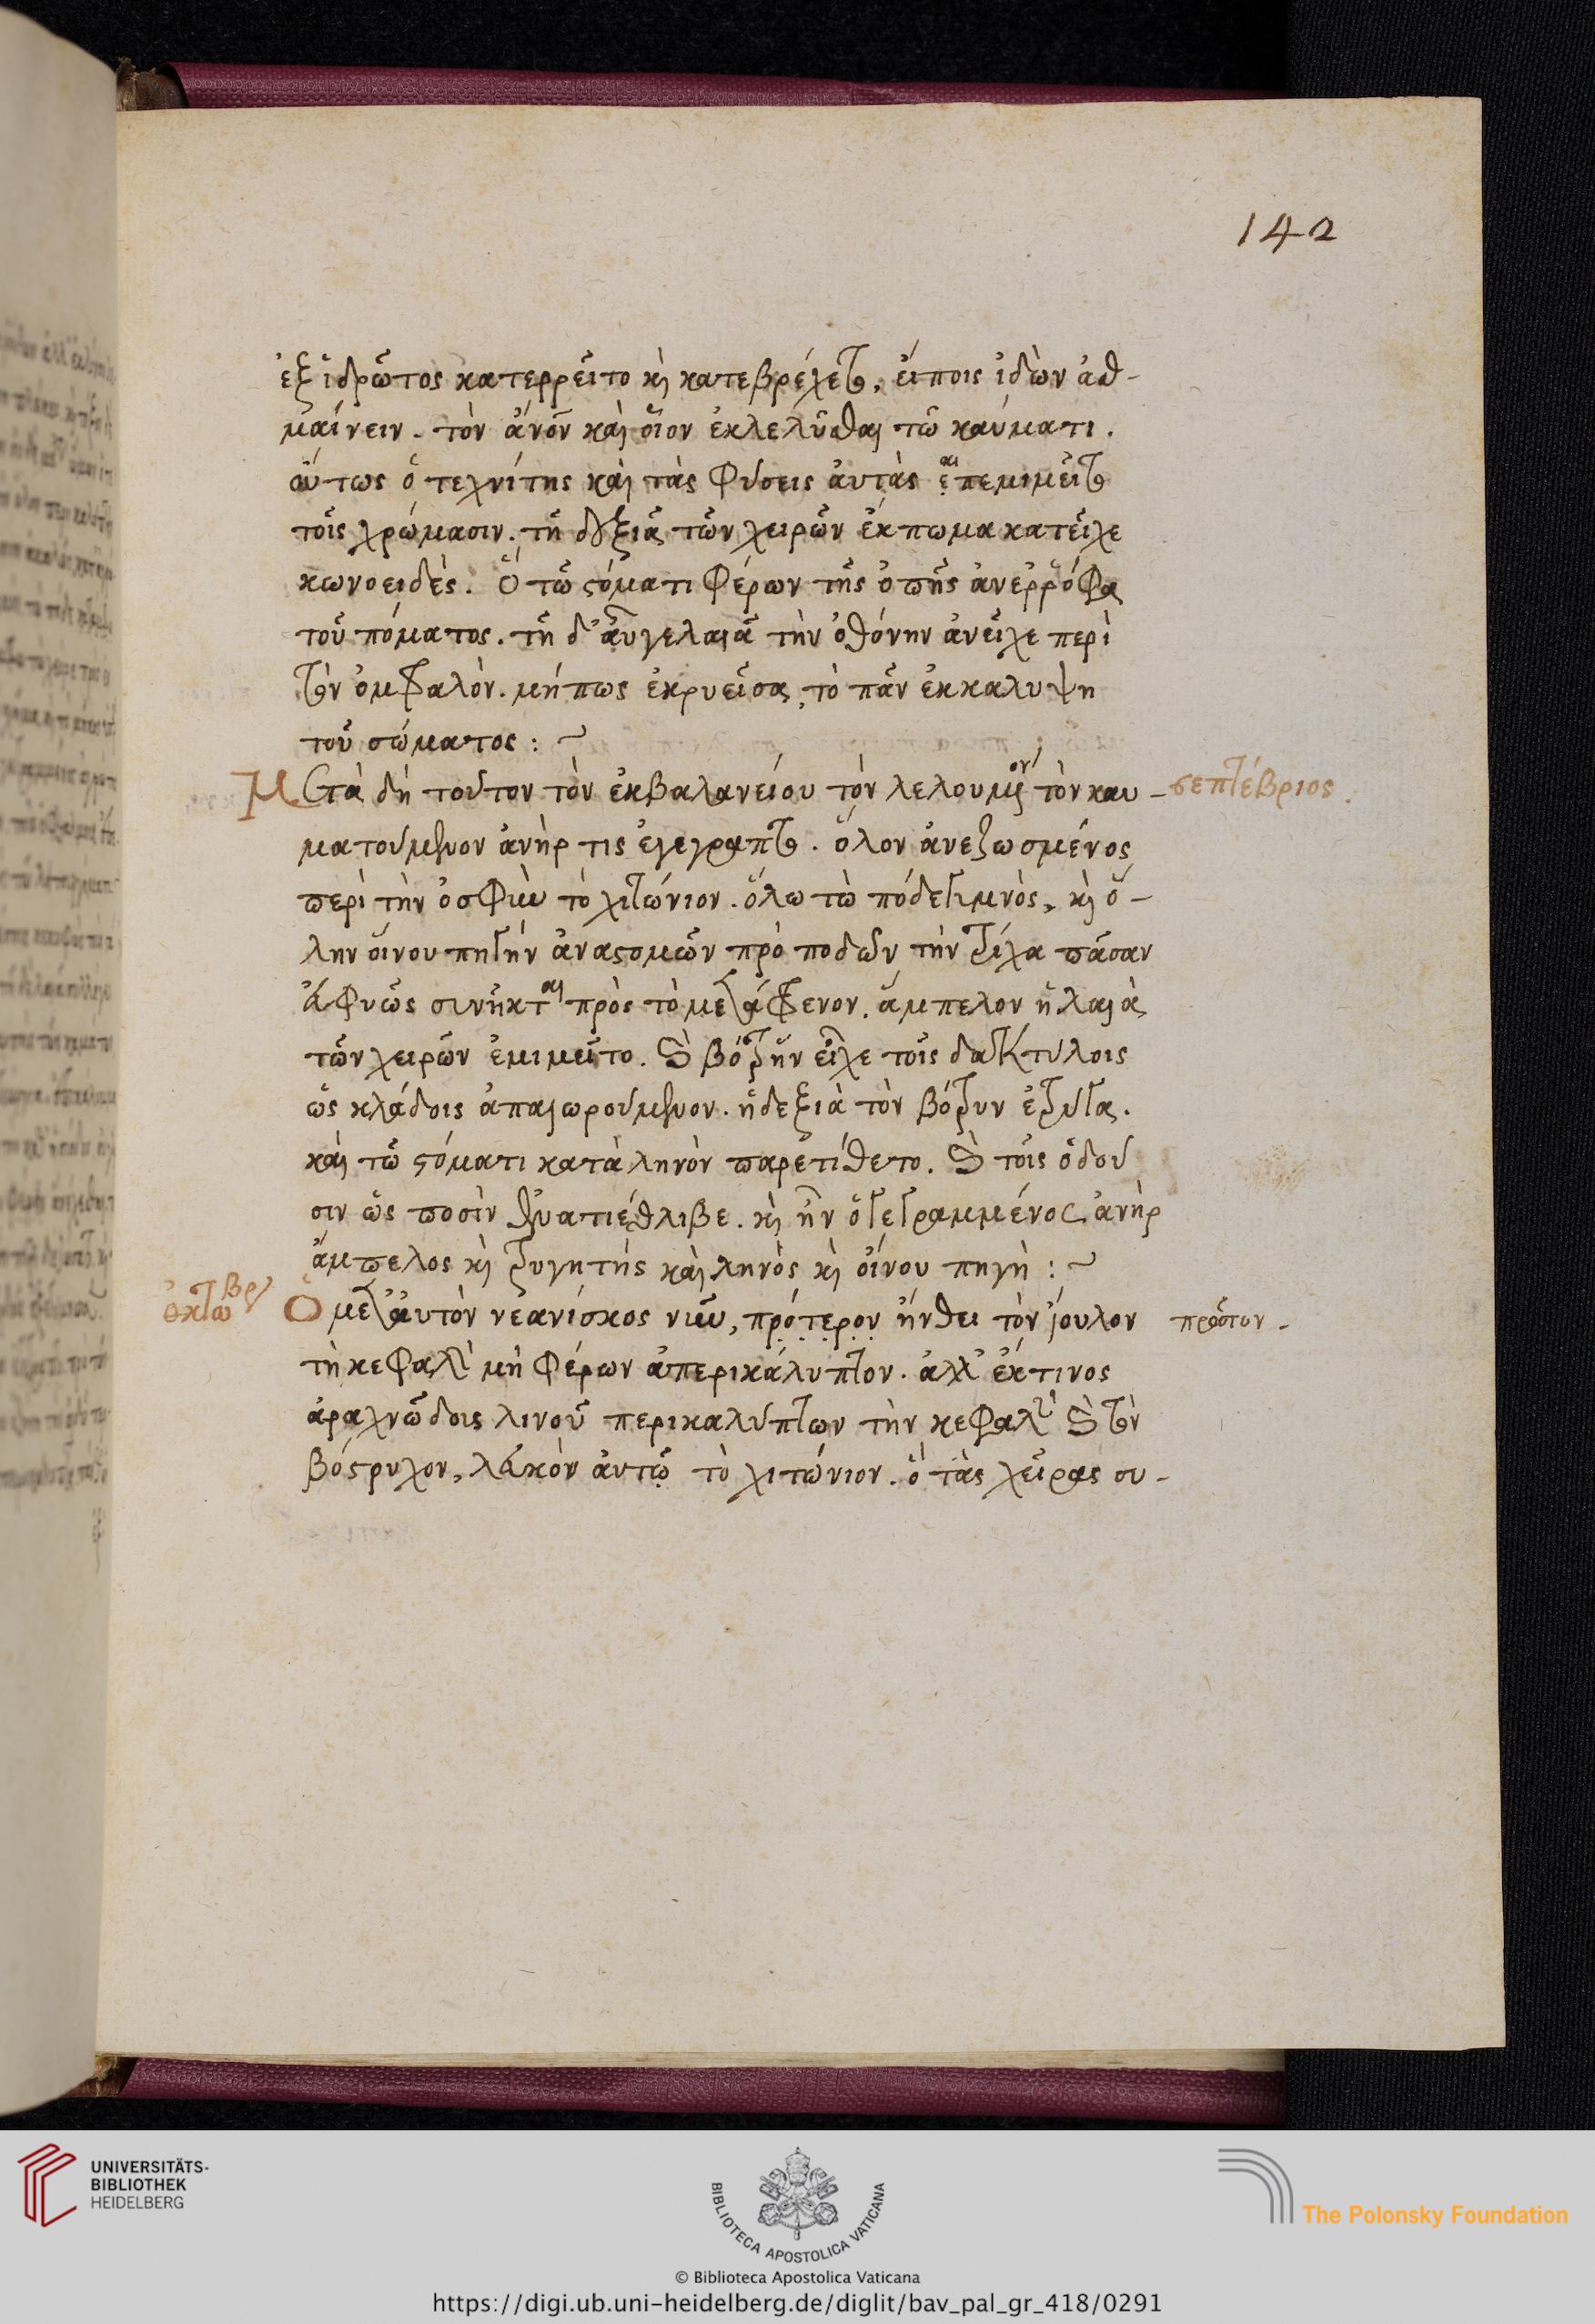 142
ἐξ ἱδρῶτος κατερρεῖτο κὶ κατεβρέχετο, εἴποις ἰδὼν ἀσθ-
μαίνειν. τὸν ἄνον καὶ οἷον ἐκλελῦσθαι τῶ καύματι.
οὕτως ὁ τεχνίτης καὶ τὰς φύσεις αὐτὰς ἐπεμιμεῖτο
τοῖς χρώμασιν. τῆ δεξιᾶ τῶν χειρῶν ἔκπωμα κατεῖχε
κωνοειδὲς. ὃ τῶ στόματι φέρων τῆς ὀπῆς ἀνερρόφα
τοῦ πόματος. τῆ δ' αὖγε λαιᾶ τὴν ὀθόνην ἀνεῖχε περὶ
τὸν ὀμφαλὸν. μήπως ἐκρυεῖσα, τὸ πᾶν ἐκκαλυψη
τοῦ σώματος : ~
Μετὰ δὴ τοῦτον τὸν ἐκβαλανείου τὸν λελουμένον τὸν καυ-
σεπτέβριος.
ματούμενον ἀνὴρ τις ἐγεγραπτο. ὅλον ἀνεζωσμένος
περὶ τὴν ὀσφὺν τὸ χιτώνιον. ὅλω τὼ πόδε γυμνὸς, κὶ ὅ-
λην οἴνου πηγὴν ἀναστομῶν πρὸ ποδῶν τὴν τρίχα πᾶσαν
εὐφυῶς συνῆκται πρὸς τὸ μετάφρενον. ἄμπελον ἡ λαιὰ
τῶν χειρῶν ἐμιμεῖτο. καὶ βότρυν εἶχε τοῖς δακτύλοις
ὡς κλάδοις ἀπαιωρούμενον. ἡ δεξιὰ τὸν βότρυν ἐτρύγα.
καὶ τῶ στόματι κατὰ ληνὸν παρετίθετο. καὶ τοῖς ὀδοῦ
σιν ὡς ποσὶν ἐναπέθλιβε. κὶ ἦν ὁ γεγραμμένος ἀνὴρ
ἄμπελος κὶ τρυγητὴς καὶ ληνὸς κὶ οἴνου πηγὴ : ~
ὀκτώβρ
Ὁ μετ' αὐτὸν νεανίσκος νῦν, πρότερον ἤνθει τὸν ἴουλον
πρῶτον.
τὴ κεφαλὴν μὴ φέρων ἀπερικάλυπτον. ἀλλ' ἔκ τινος
ἀραχνώδοις λινοῦ περικαλύπτων τὴν κεφαλὴν καὶ τὸν
βόστρυχον, λευκὸν αὐτῶ τὸ χιτώνιον. ὃ τὰς χεῖρας συ-
UNIVERSITÄTS-
BIBLIOTHEK
HEIDELBERG
BIBLIOTECA APOSTOLICA VATICANA
The Polonsky Foundation
© Biblioteca Apostolica Vaticana
https://digi.ub.uni-heidelberg.de/diglit/bav_pal_gr_418/0291